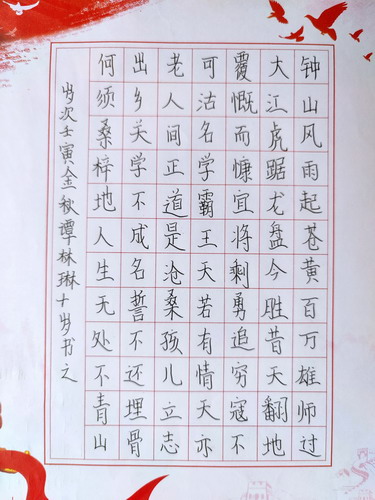 钟山风雨起苍黄百万雄师过
大江虎踞龙盘今胜昔天翻地
覆慨而慷宜将剩勇追穷寇不
可沽名学霸王天若有情天亦
老人间正道是沧桑孩儿立志
出乡关学不成名誓不还埋骨
何须桑梓地人生无处不青山
岁次壬寅金秋谭林琳十岁书之